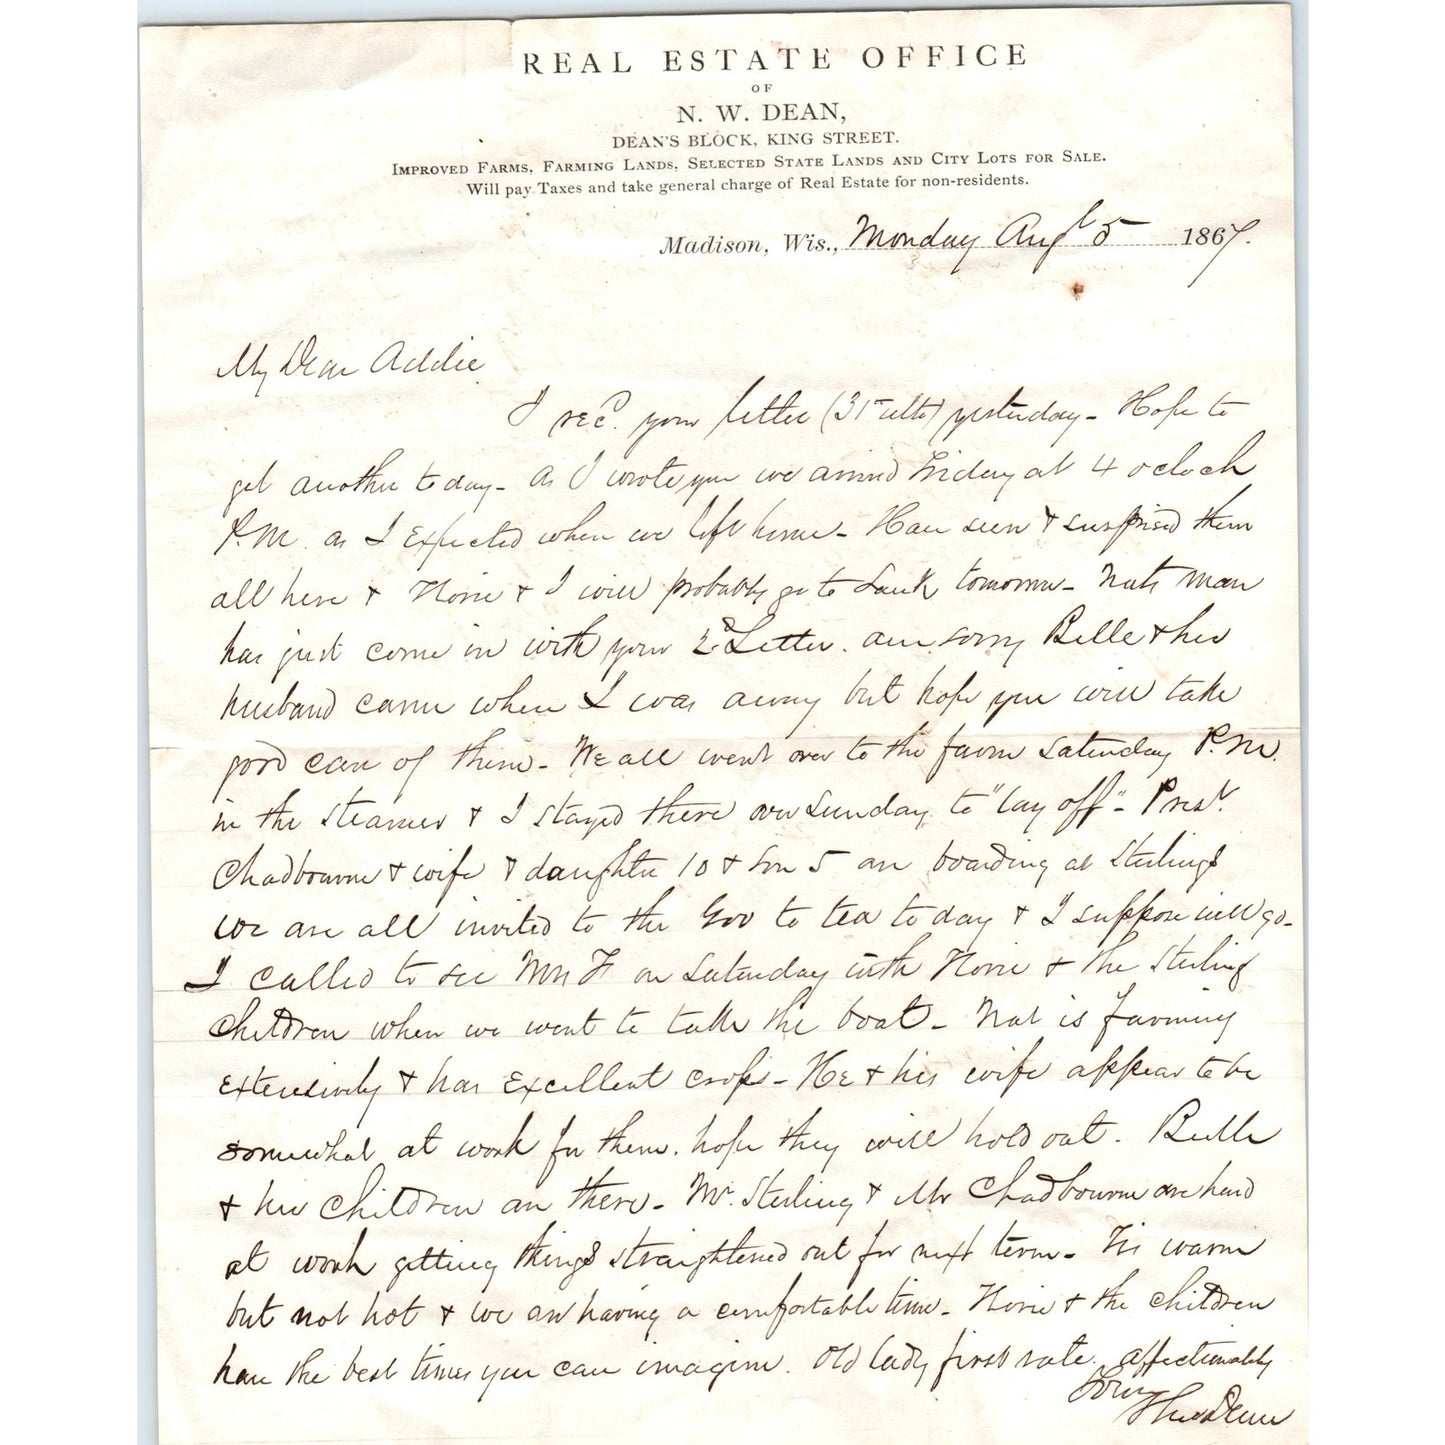 REAL ESTATE OFFICE
OF
N. W. DEAN,
DEAN'S BLOCK, KING STREET.
IMPROVED FARMS, FARMING LANDS, SELECTED STATE LANDS AND CITY LOTS FOR SALE.
Will pay Taxes and take general charge of Real Estate for non-residents.
Madison, Wis., Monday Augt 5 1867.
My Dear Addie
I recd. your letter (31st ulto) yesterday - Hope to
get another to day - As I wrote you we arrived Friday at 4 oclock
P.M. as I expected when we left home - Have seen & surprised them
all here & Florie & I will probably go to Sauk tomorrow - Nats man
has just come in with your 2d Letter. am sorry Belle & her
husband came when I was away but hope you will take
good care of them - We all went over to the farm Saturday P.M.
in the steamer & I stayed there over Sunday to "lay off" - Prest.
Chadbourne & wife & daughter 10 & son 5 are boarding at Sterlings
we are all invited to the Gov to tea to day & I suppose will go -
I called to see Mrs F on Saturday with Florie & the Sterling
children when we went to take the boat - Nat is farming
extensively & has excellent crops - He & his wife appear to be
somewhat at work for them. hope they will hold out. Belle
& her children are there - Mr. Sterling & Mr Chadbourne are hard
at work getting things straightened out for next term - Tis warm
but not hot & we are having a comfortable time - Florie & the children
have the best times you can imagine. Old lady first rate. affectionately
Your
Dean